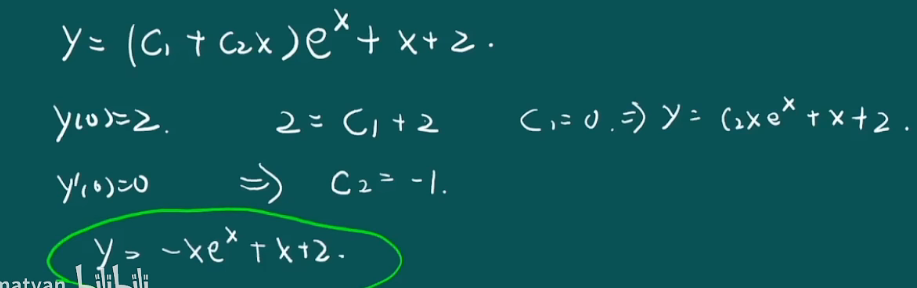 y = (C₁ + C₂x)eˣ + x + 2.
y(0)=2. 2 = C₁ + 2 C₁ = 0. ⇒ y = C₂xeˣ + x + 2.
y'(0)=0 ⇒ C₂ = -1.
y = -xeˣ + x + 2.
matyan bilibili